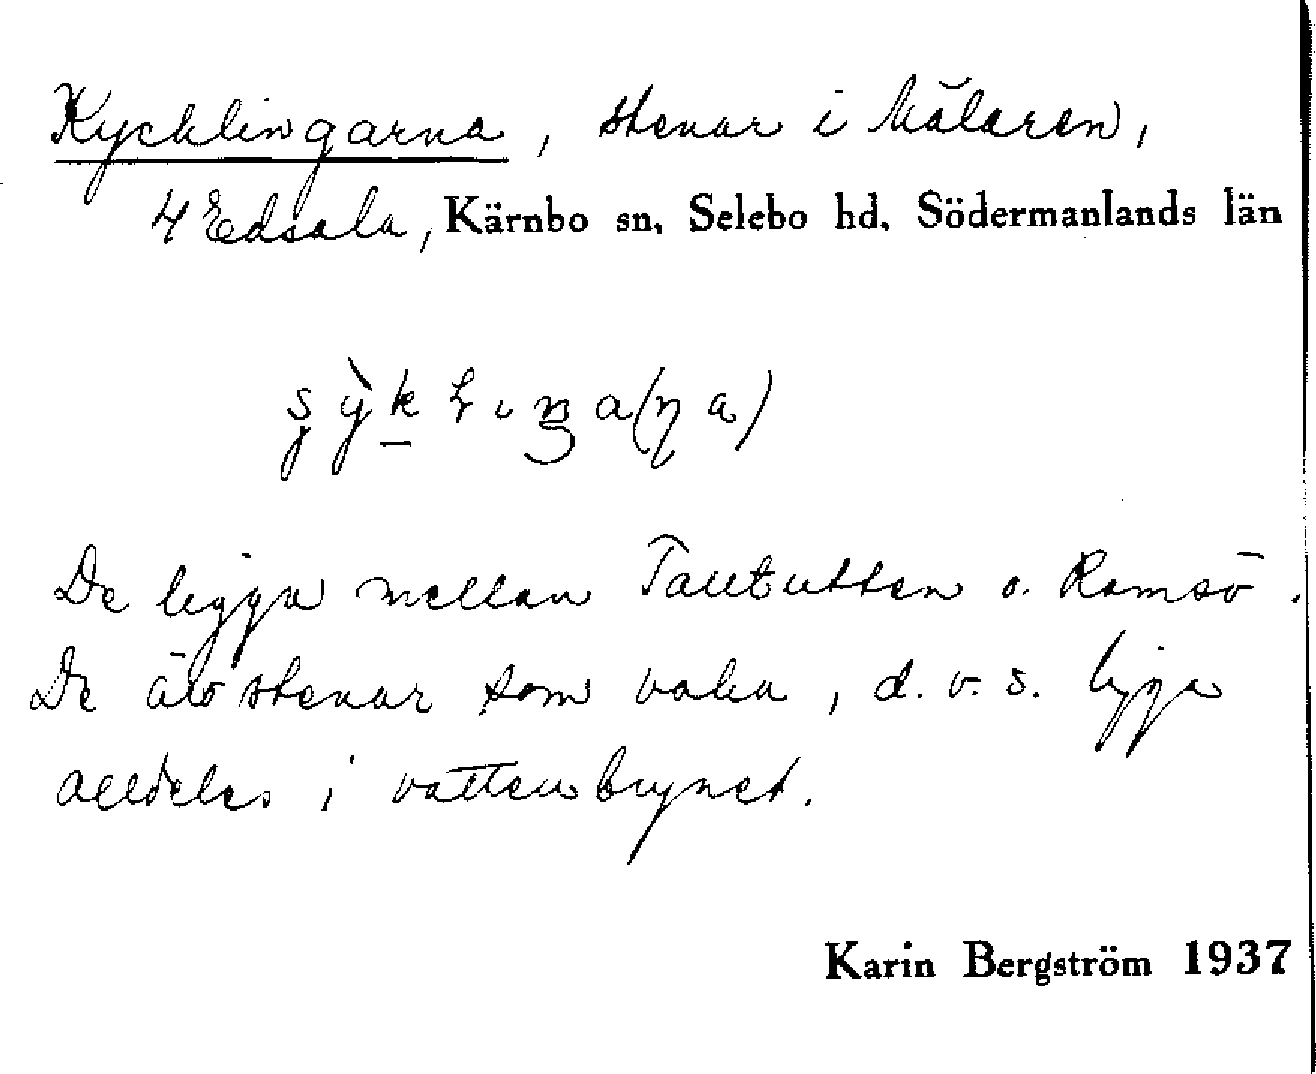 Kycklingarna, stenar i Mälaren,
4 Edsala, Kärnbo sn, Selebo hd, Södermanlands län
De ligga mellan o. Ramsö.
De äro stenar som vaka, d.v.s. ligga
alldeles i vattenbrynet.
Karin Bergström 1937